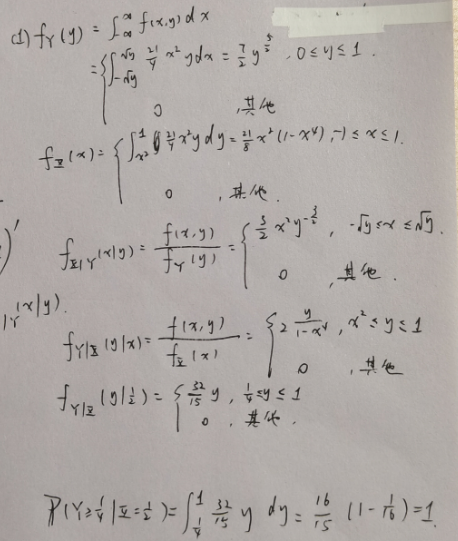 (1) fY(y) = ∫_{-∞}^{∞} f(x,y)dx
= { ∫_{-√y}^{√y} 21/4 x²y dx = 7/2 y^{5/2}, 0≤y≤1.
0 ,其他
fX(x) = { ∫_{x²}^{1} 21/4 x²y dy = 21/8 x²(1-x⁴), -1≤x≤1.
0 ,其他.
fX|Y(x|y) = f(x,y)/fY(y) = { 3/2 x²y^{-3/2}, -√y≤x≤√y.
0 ,其他.
|Y(x|y).
fY|X(y|x) = f(x,y)/fX(x) = { 2 y/(1-x⁴), x²≤y≤1
0 ,其他
fY|X(y|1/2) = { 32/15 y, 1/4≤y≤1
0 ,其他.
P(Y≥1/4|X=1/2) = ∫_{1/4}^{1} 32/15 y dy = 16/15 (1-1/16) = 1.